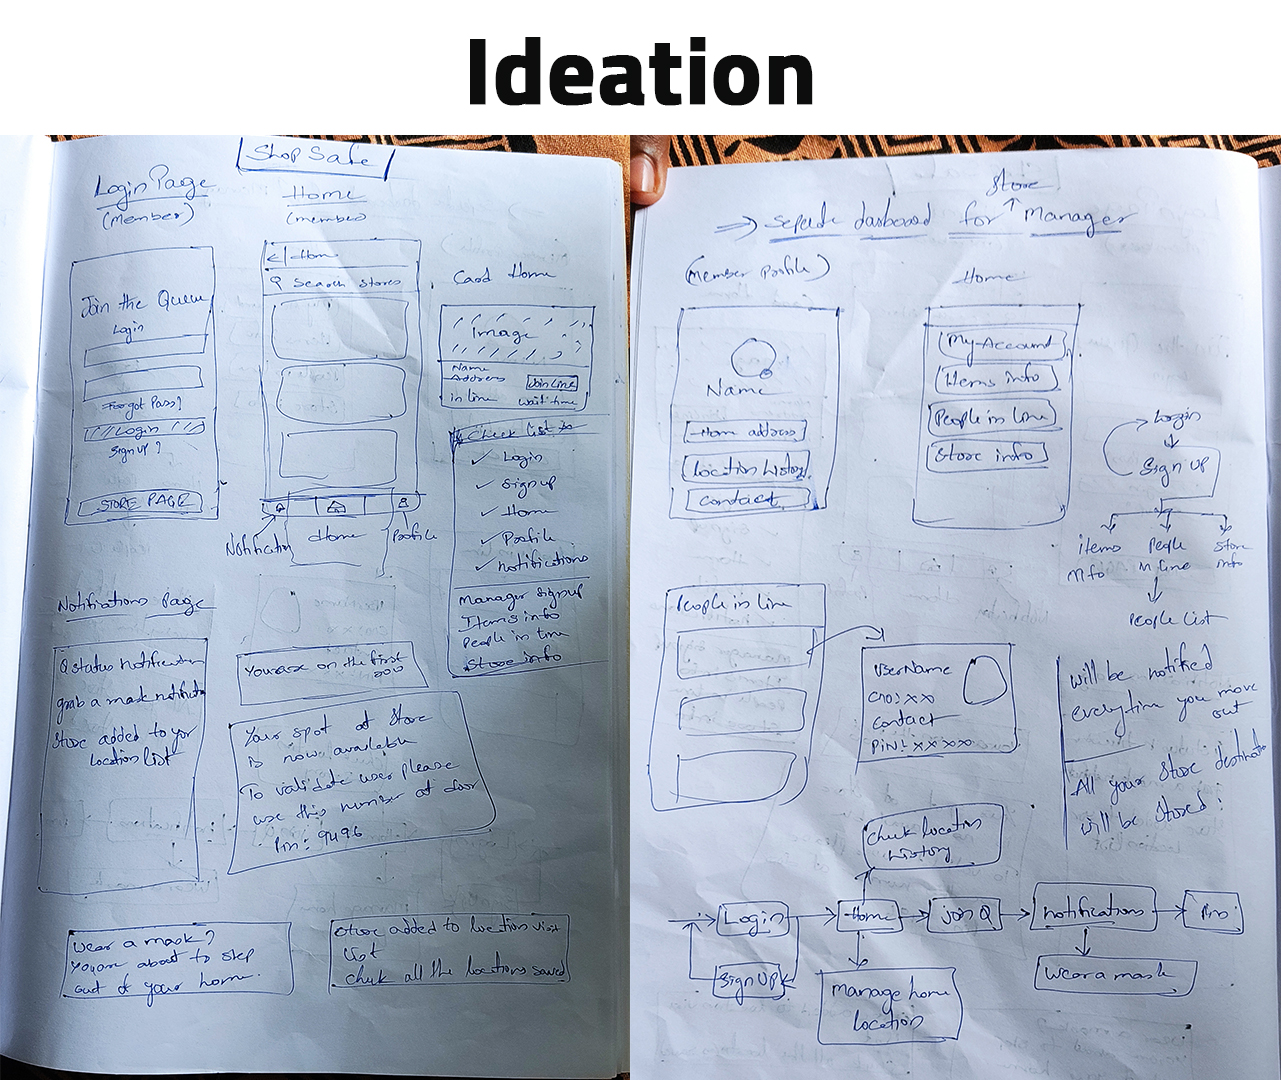 Ideation
Shop Safe
Login Page
(member)
Home
(member)
Join the Queue
Login
Forgot Pass?
Login
Sign up ?
STORE PAGE
Home
Search stores
Notification
Home
Profile
Card Home
Image
Name
Address
in line
Join Line
wait time
Check list
Login
Signup
Home
Profile
notifications
Manager Signup
Items info
People in line
Store info
Notifications Page
Q status notification
grab a mask notification
Store added to your
Location list
You are on the first
Your spot at Store
is now available
To validate user please
use this number at door
Pin: 9496
Wear a mask?
You are about to step
out of your home.
Store added to location visit
list
check all the locations saved
Store
=> seperate dasboard for Manager
(Member Profile)
Name
Home address
Location History
Contact
Home
My Account
Items info
People in line
Store info
Login
Sign UP
items
info
People
in line
Store
info
People List
People in line
UserName
Contact
PIN: XXXXX
will be notified
everytime you move
out
All your Store destination
will be stored.
Check location
History
Login
Home
join Q
notifications
Pin
Sign UP
manage home
location
Wear a mask